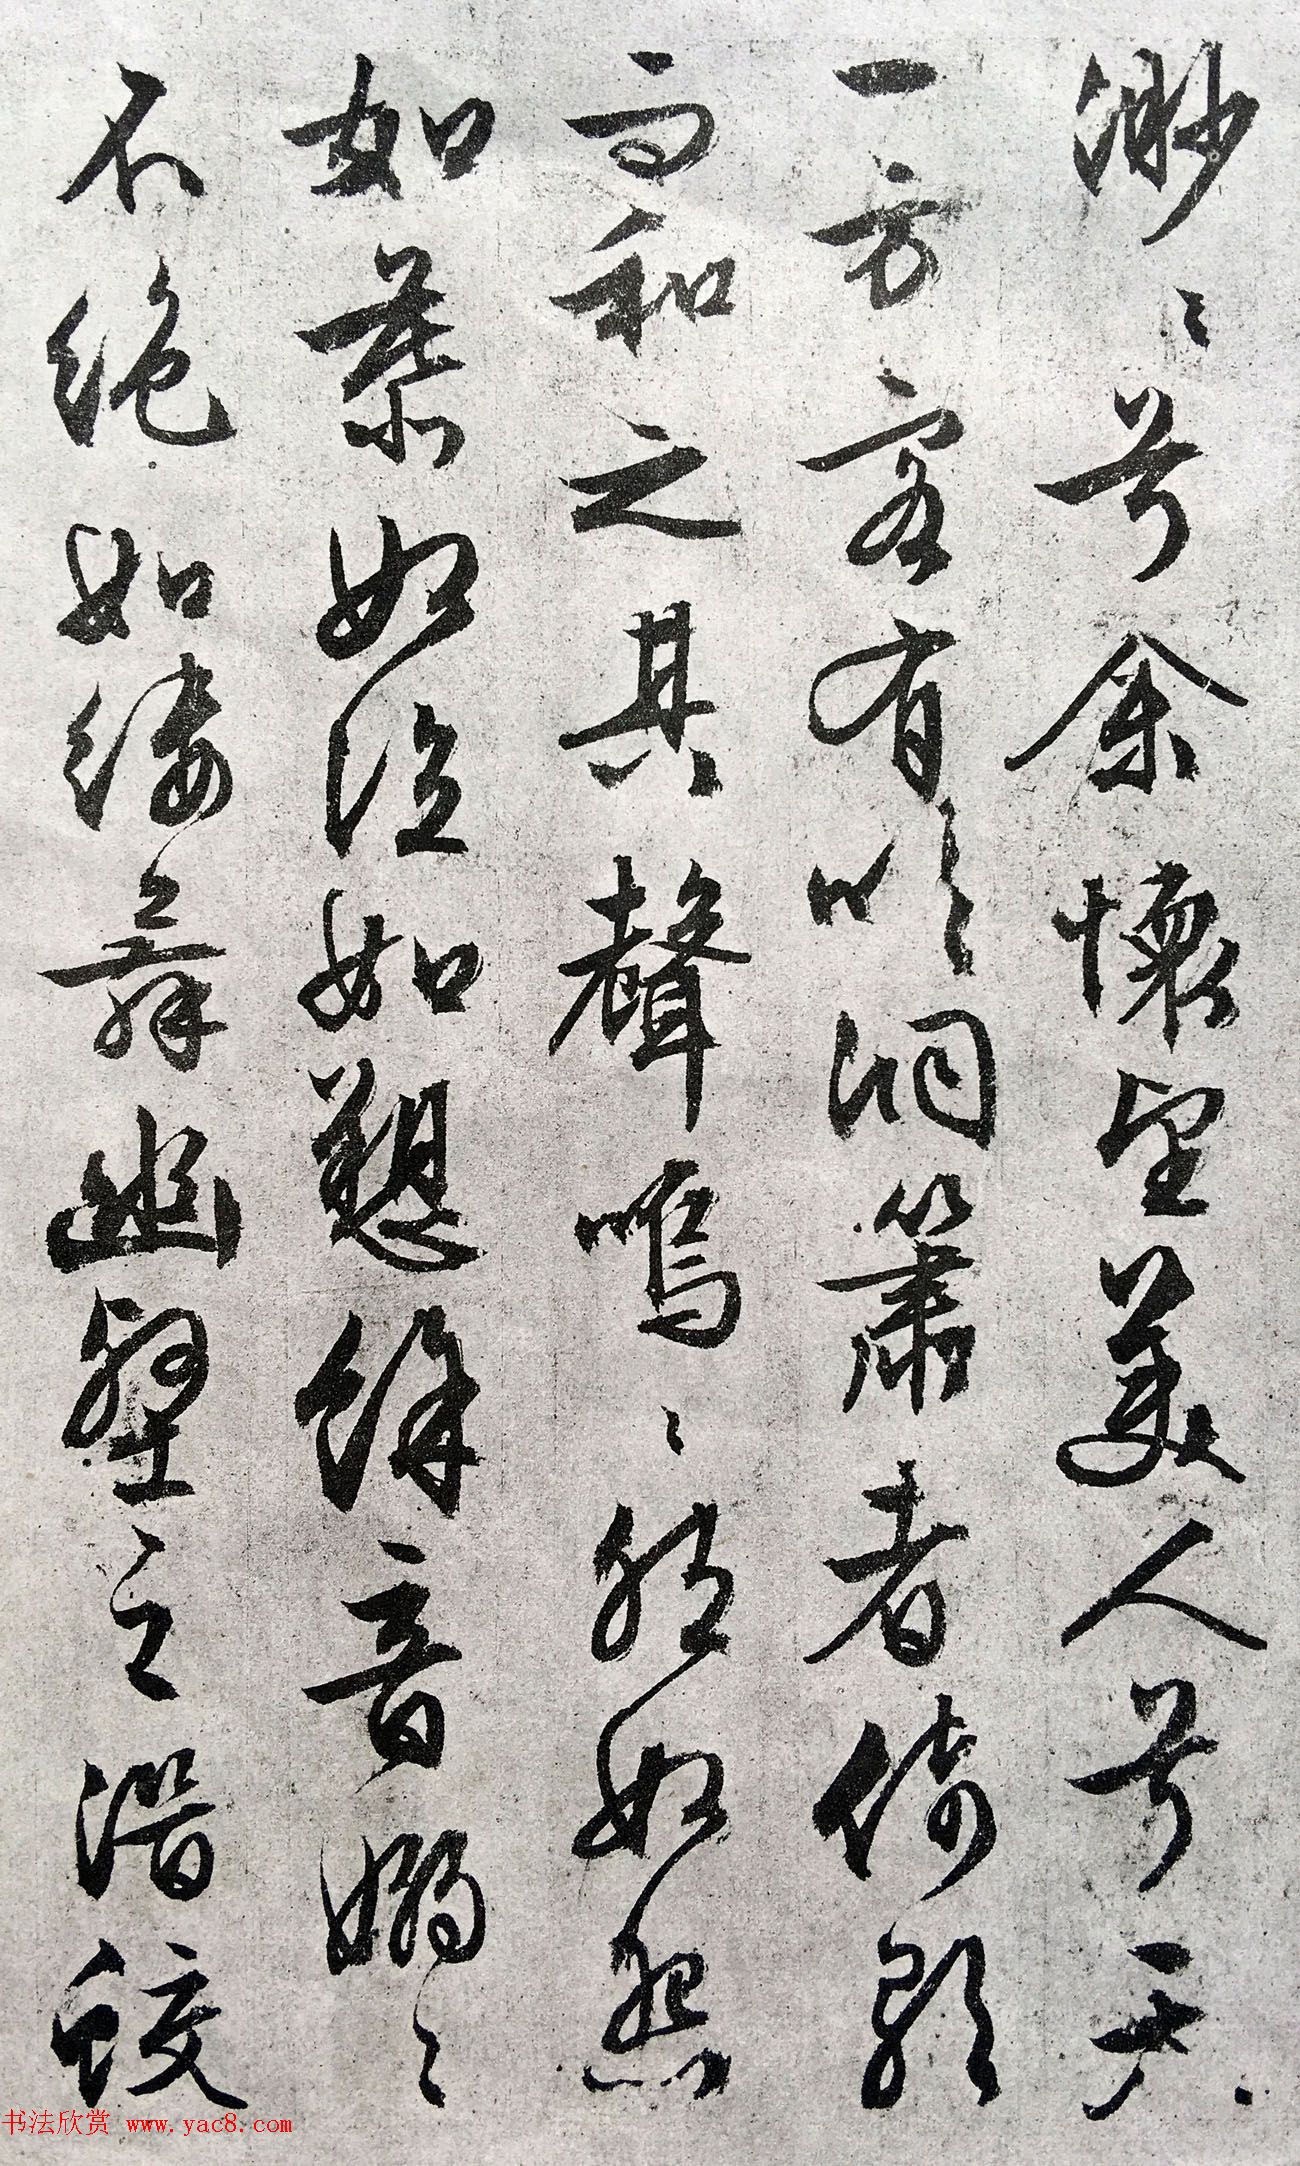 渺〻兮余懷望美人兮天
一方客有吹洞簫者倚歌
而和之其聲嗚〻然如怨
如慕如泣如愬餘音嫋〻
不絕如縷舞幽壑之潛蛟
书法欣赏 www.yac8.com